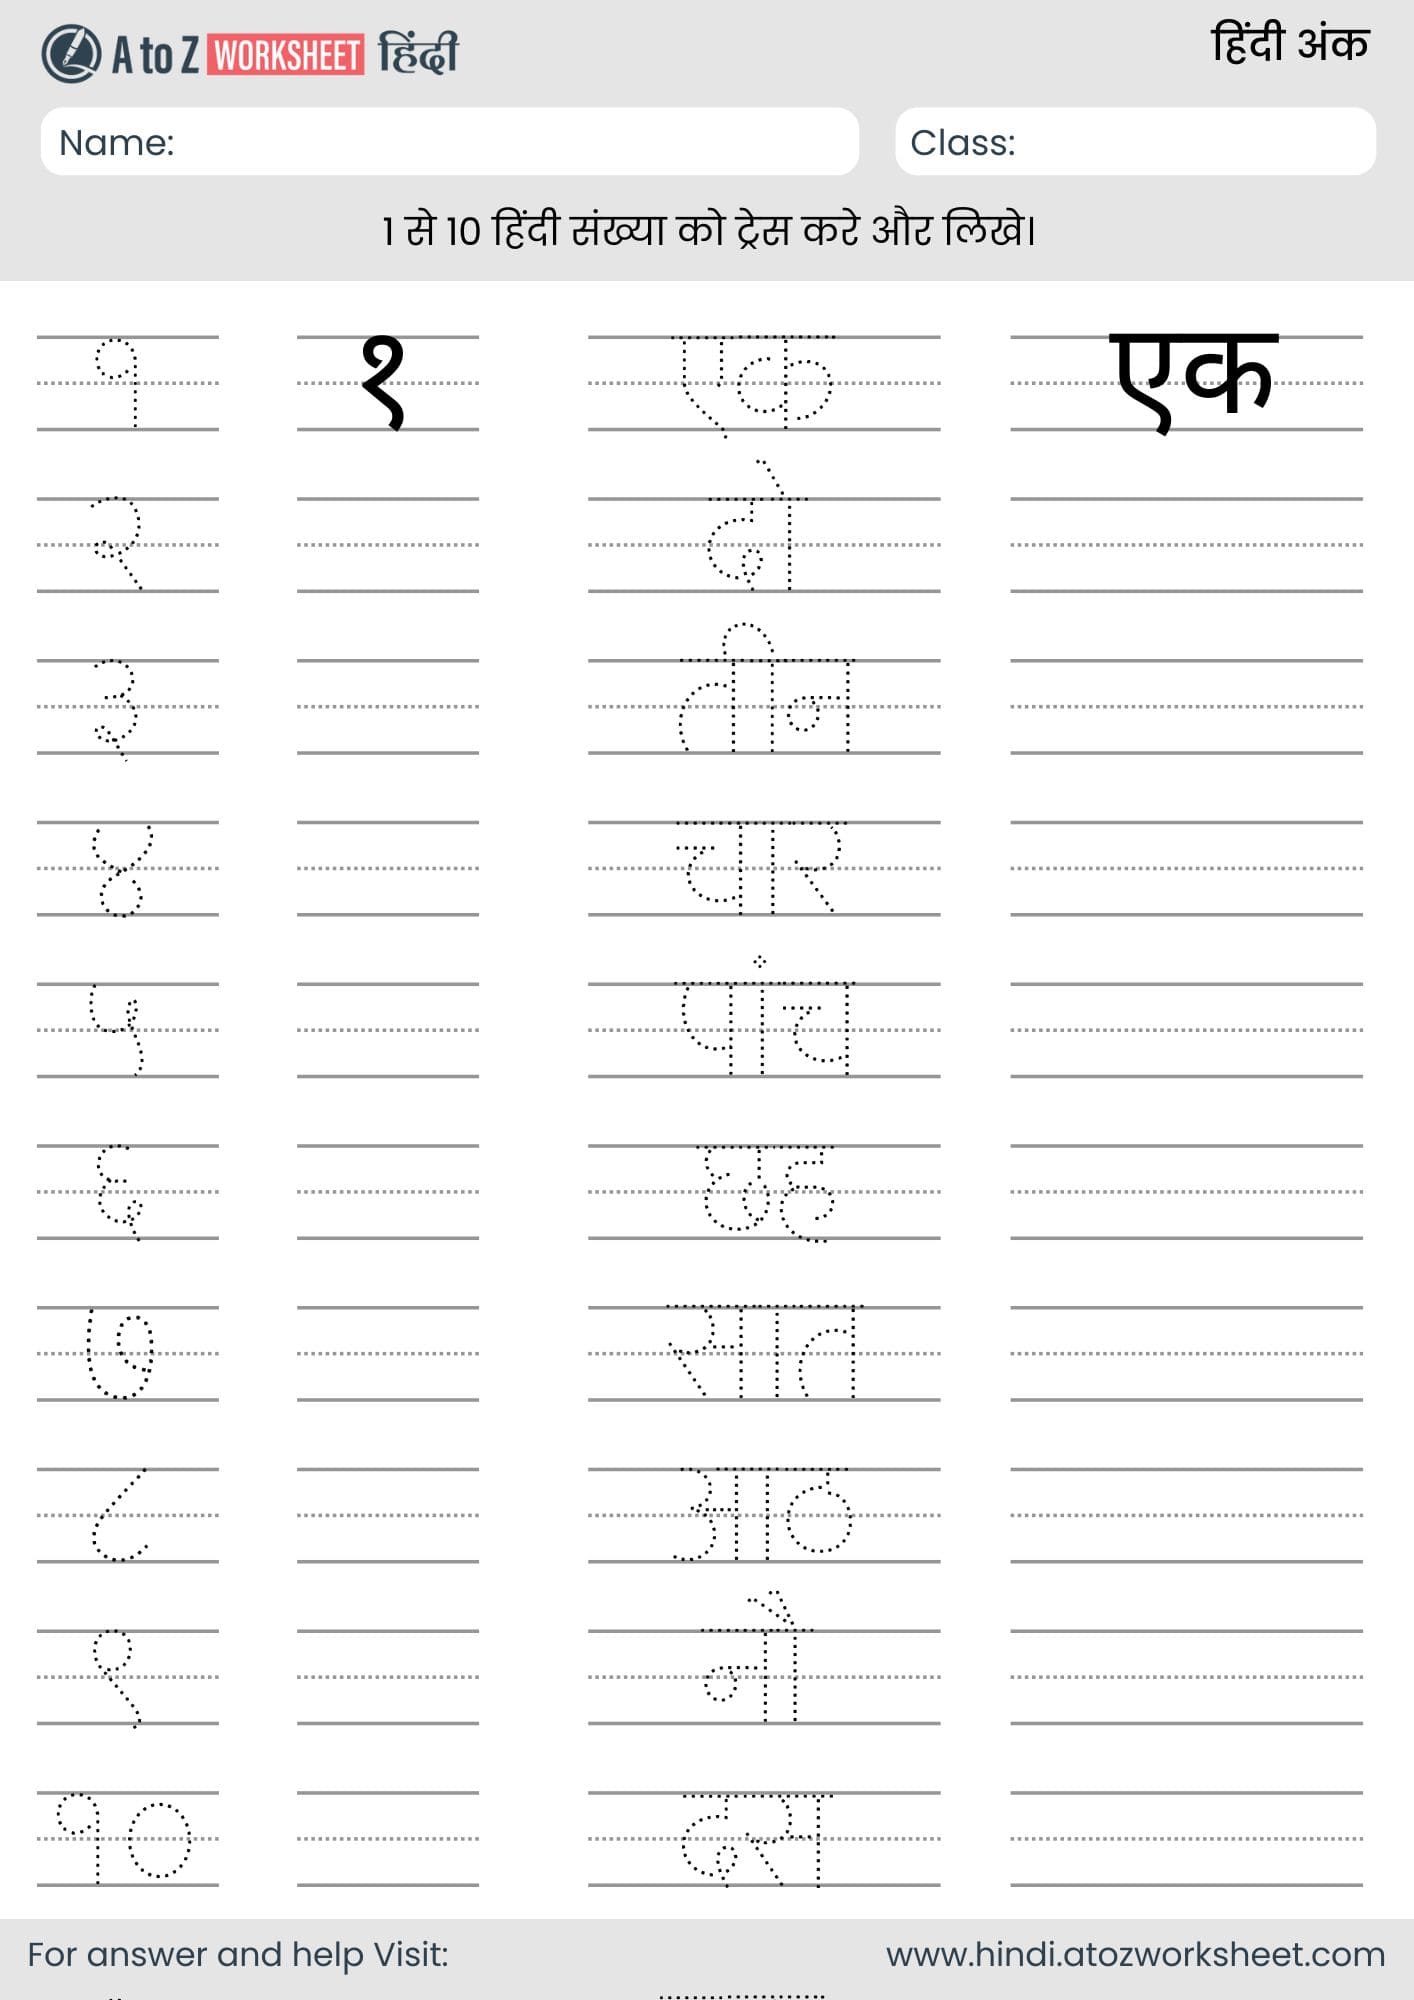 A to Z WORKSHEET हिंदी
हिंदी अंक
Name:
Class:
1 से 10 हिंदी संख्या को ट्रेस करे और लिखे।
१ १ एक एक
२ दो
३ तीन
४ चार
५ पांच
६ छह
७ सात
८ आठ
९ नौ
१० दस
For answer and help Visit:
www.hindi.atozworksheet.com